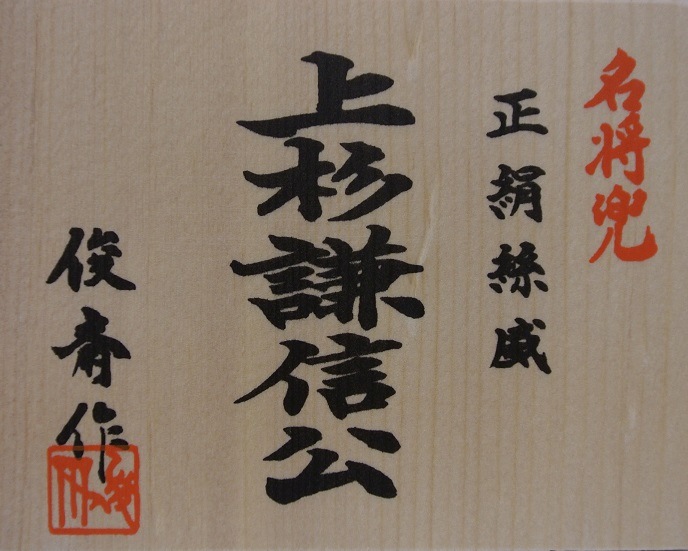 名将兜
正絹絲威
上杉謙信公
俊斎作